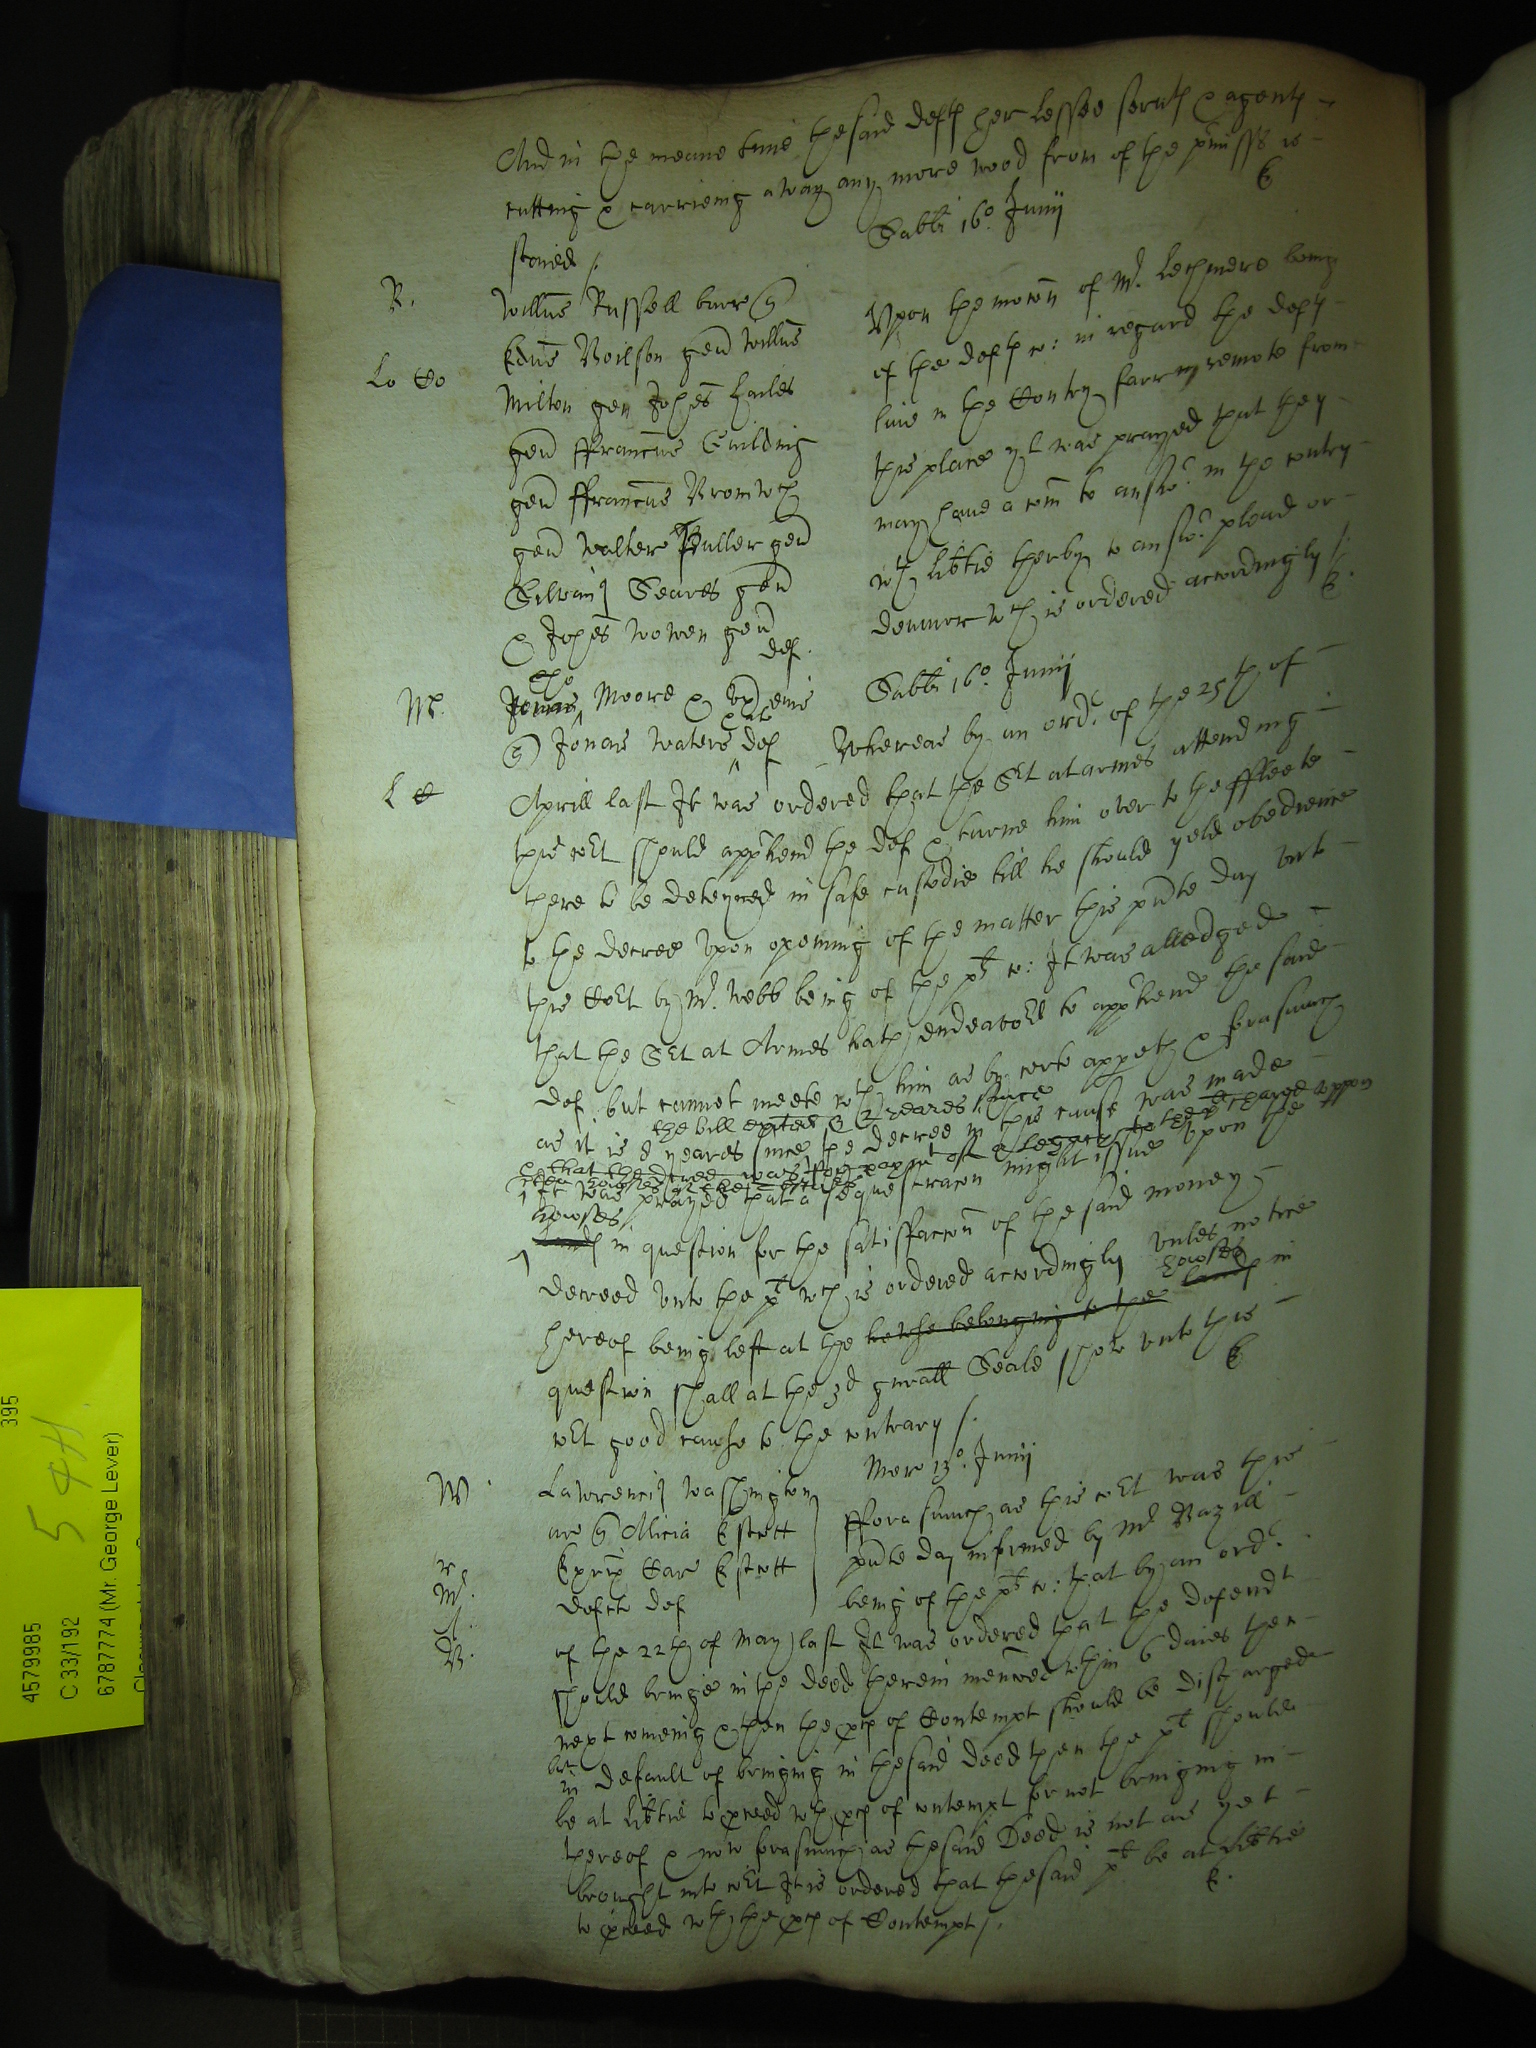 And in the meane time the said deft her lessee servts & agents
cutting & carrieing away any more wood from of the pmisss is
stoied /.
E
Sabbi 16o. Junij
R.
Willus Russell barr
Edus Voilson gen Willus
Lo Co
Milton gen Johes
gen ffrancus Guilding
gen ffrancus Bromwch
gen Walter Buller gen
Seares gen
& Johes Wowen gen
def.
Vpon the mocon of Mr. Lechmere being
of the deftes co: in regard the deftes
live in the Contry farr remote from
this place yt was prayed that they
may have a com to answr. in the contry
wth libtie therby to answr. plead or
demurr wch is ordered accordingly /.
E.
Mr.
Moore & Vx eius
Jonas Waters def
Sabbi 16o. Junij
Whereas by an ordr. of the 25th of
Aprill last It was ordered that the Srt at armes attending
this cort should apphend the def & turne him over to the ffleete
there to be deteyned in safe custodie till he should yeld obedience
to the decree Vpon opening of the matter this pnte day vnto
this Cort by Mr. Webb being of the plt co: It was alledged
that the Srt at Armes hath endeavord to apphend the said
def but cannot meete wth him as by certe appeth & forasmuch
the bill & 2 yeares since
as it is 8 yeares since the decree in this cause was made
& that the decree was for paymt of a legacy to be charged vppon
It was prayed that a sequestracon might issue vpon the
howses
in question for the satisfaccon of the said money
decreed vnto the plt wch is ordered accordingly vnles notice
howses
hereof being left at the howse belonging to the lands in
question shall at the 3d gnrall Seale shew vnto this
cort good cause to the contrary /.
E
W
Lawrencij Washington
ar Alicia Estcott
Exrix Car Estcott
defcte def
r
Mr.
B.
Mer 13o. Junij
fforasmuch as this cort was this
pnte day informed by Mr
being of the plt co: that by an ordr.
of the 22th of May last It was ordered that the defendt
should bringe in the deed therein menconed wthin 6 daies then
next comeing & then the pces of Contempt should be discharged
but
in default of bringing in the said deed then the plt should
be at libtie to pceed wth pces of contempt for not bringing in
thereof & now forasmuch as the said Deed is not as yet
brought into cort It is ordered that the said plt be at libtie
to pceed wth the pces of Contempt /.
E.
395
5 4H.
4579985
C 33/192
6787774 (Mr. George Lever)